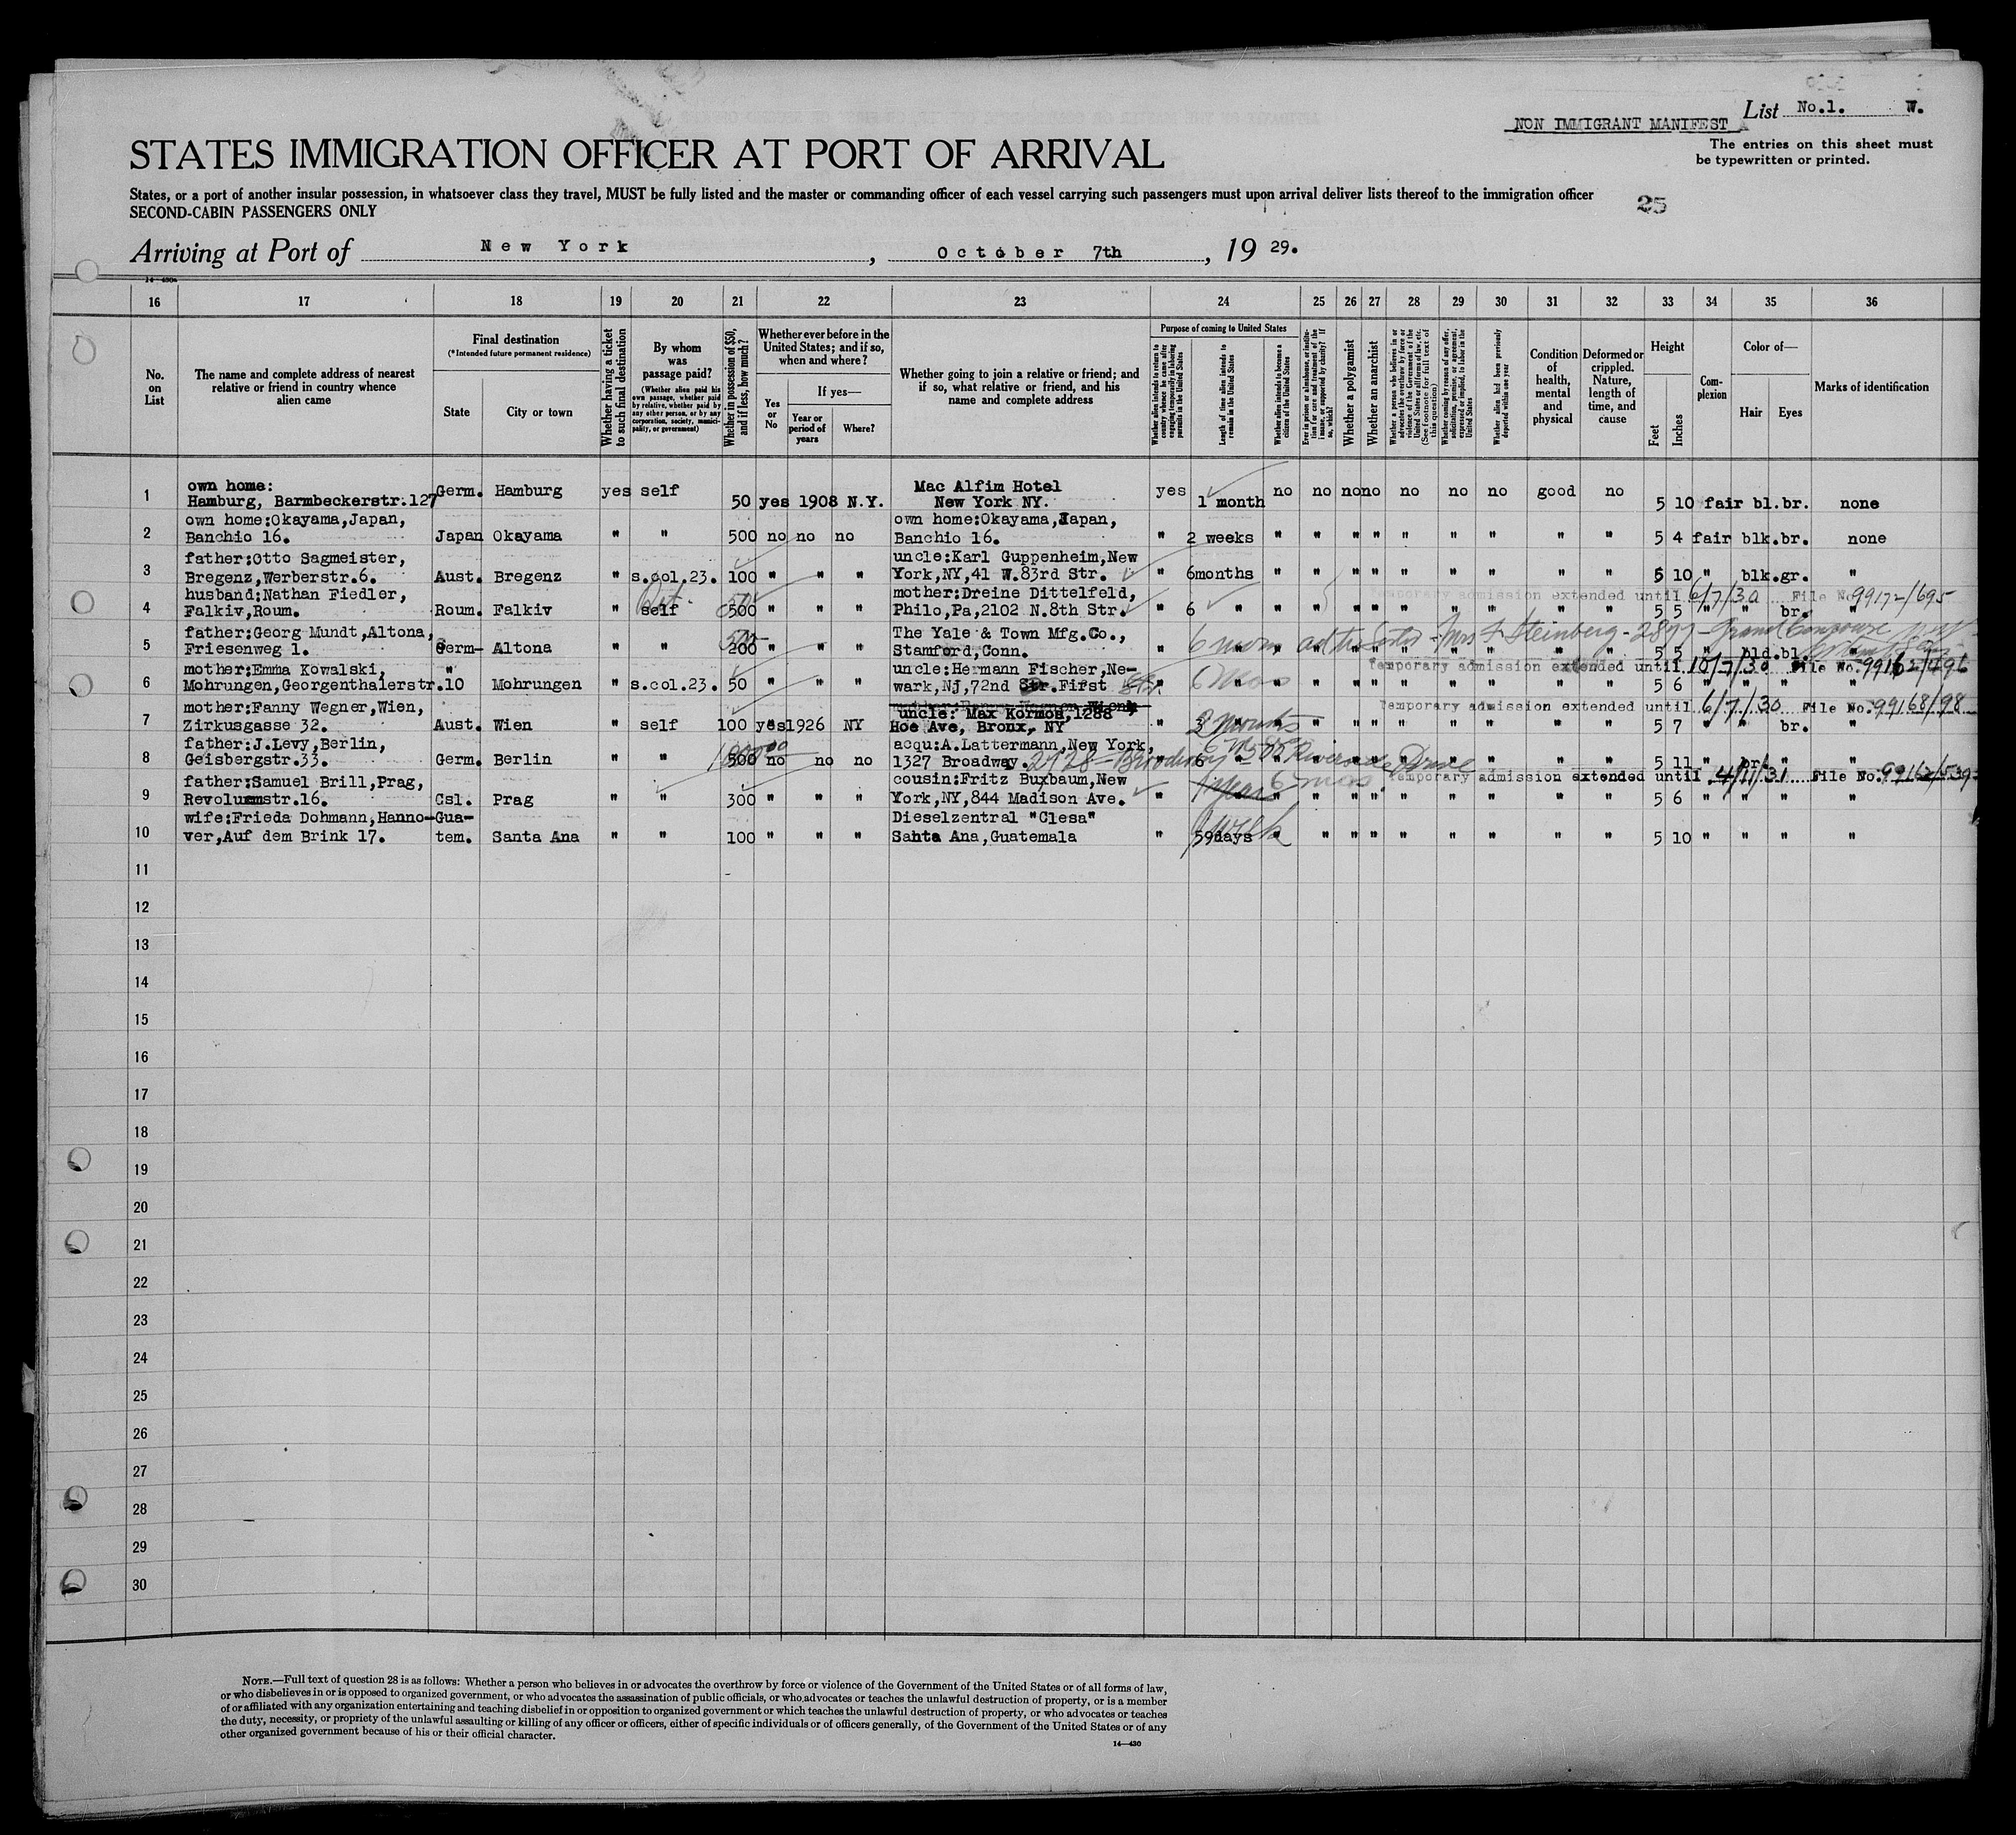 List No.1. W.
NON IMMIGRANT MANIFEST
The entries on this sheet must
be typewritten or printed.
STATES IMMIGRATION OFFICER AT PORT OF ARRIVAL
States, or a port of another insular possession, in whatsoever class they travel, MUST be fully listed and the master or commanding officer of each vessel carrying such passengers must upon arrival deliver lists thereof to the immigration officer
SECOND-CABIN PASSENGERS ONLY
25
Arriving at Port of New York, October 7th, 19 29.
16 17 18 19 20 21 22 23 24 25 26 27 28 29 30 31 32 33 34 35 36
No. on List
The name and complete address of nearest relative or friend in country whence alien came
Final destination
(*Intended future permanent residence)
State
City or town
Whether having a ticket to such final destination
By whom was passage paid?
(Whether alien paid his own passage, whether paid by relative, whether paid by any other person, or by any corporation, society, municipality, or government)
Whether in possession of $50, and if less, how much?
Whether ever before in the United States; and if so, when and where?
Yes or No
If yes—
Year or period of years
Where?
Whether going to join a relative or friend; and if so, what relative or friend, and his name and complete address
Purpose of coming to United States
Whether alien intends to return to country whence he came after engaging temporarily in laboring pursuits in the United States
Length of time alien intends to remain in the United States
Whether alien intends to become a citizen of the United States
Ever in prison or almshouse, or institution for care and treatment of the insane, or supported by charity? If so, which?
Whether a polygamist
Whether an anarchist
Whether a person who believes in or advocates the overthrow by force or violence of the Government of the United States or all forms of law, etc. (See footnote for full text of this question)
Whether coming by reason of any offer, solicitation, promise, or agreement, expressed or implied, to labor in the United States
Whether alien had been previously deported within one year
Condition of health, mental and physical
Deformed or crippled. Nature, length of time, and cause
Height
Feet
Inches
Complexion
Color of—
Hair
Eyes
Marks of identification
1 own home: Mac Alfim Hotel
Hamburg, Barmbeckerstr.127 Germ. Hamburg yes self 50 yes 1908 N.Y. New York NY. yes 1 month no no no no no no no good no 5 10 fair bl. br. none
2 own home:Okayama,Japan, own home:Okayama,Japan,
Banchio 16. Japan Okayama " " 500 no no no Banchio 16. " 2 weeks " " " " " " " " " 5 4 fair blk. br. none
3 father:Otto Sagmeister, uncle:Karl Guppenheim,New
Bregenz,Werberstr.6. Aust. Bregenz " s.col.23. 100 " " " York,NY,41 W.83rd Str. " 6months " " " " " " " " " 5 10 " blk. gr. "
Temporary admission extended until 6/7/30 File No 99172/695
4 husband:Nathan Fiedler, mother:Dreine Dittelfeld,
Falkiv,Roum. Roum. Falkiv " self 500 " " " Philo,Pa,2102 N.8th Str. " 6 " " " " " " " " " " 5 5 " " br. "
5 father:Georg Mundt,Altona, The Yale & Town Mfg.Co.,
Friesenweg 1. Germ- Altona " " 200 " " " Stamford,Conn. " " " " " " " " " " " 5 5 " bld. bl. "
Mrs F. Steinberg - 2877 - Grand Concourse
Temporary admission extended until 10/7/30 File No. 99162/496
6 mother:Emma Kowalski, " uncle:Hermann Fischer,Ne-
Mohrungen,Georgenthalerstr.10 Mohrungen " s.col.23. 50 " " " wark,NJ,72nd First Str. " 6 mos " " " " " " " " " " 5 6 " " " "
Temporary admission extended until 6/7/30 File No. 99168/98
7 mother:Fanny Wegner,Wien, uncle: Max Kormos,1288
Zirkusgasse 32. Aust. Wien " self 100 yes1926 NY Hoe Ave, Bronx, NY " 3 " " " " " " " " " " 5 7 " " br. "
8 father:J.Levy,Berlin, acqu:A.Lattermann,New York,
Geisbergstr.33. Germ. Berlin " " 500 no no no 1327 Broadway. 2728 - Broadway Riverside Drive " 6 " " " " " " " " " " 5 11 " br. " "
Temporary admission extended until 4/11/31 File No. 99162/539
9 father:Samuel Brill,Prag, cousin:Fritz Buxbaum,New
Revolumstr.16. Csl. Prag " " 300 " " " York,NY,844 Madison Ave. " 1 year 6 mos. " " " " " " " " " 5 6 " " " "
10 wife:Frieda Dohmann,Hanno- Gua- Dieselzentral "Clesa"
ver,Auf dem Brink 17. tem. Santa Ana " " 100 " " " Sahta Ana,Guatemala " 59days " " " " " " " " " 5 10 " " " "
11
12
13
14
15
16
17
18
19
20
21
22
23
24
25
26
27
28
29
30
NOTE.—Full text of question 28 is as follows: Whether a person who believes in or advocates the overthrow by force or violence of the Government of the United States or of all forms of law,
or who disbelieves in or is opposed to organized government, or who advocates the assassination of public officials, or who advocates or teaches the unlawful destruction of property, or is a member
of or affiliated with any organization entertaining and teaching disbelief in or opposition to organized government or which teaches the unlawful destruction of property, or who advocates or teaches
the duty, necessity, or propriety of the unlawful assaulting or killing of any officer or officers, either of specific individuals or of officers generally, of the Government of the United States or of any
other organized government because of his or their official character.
14—430